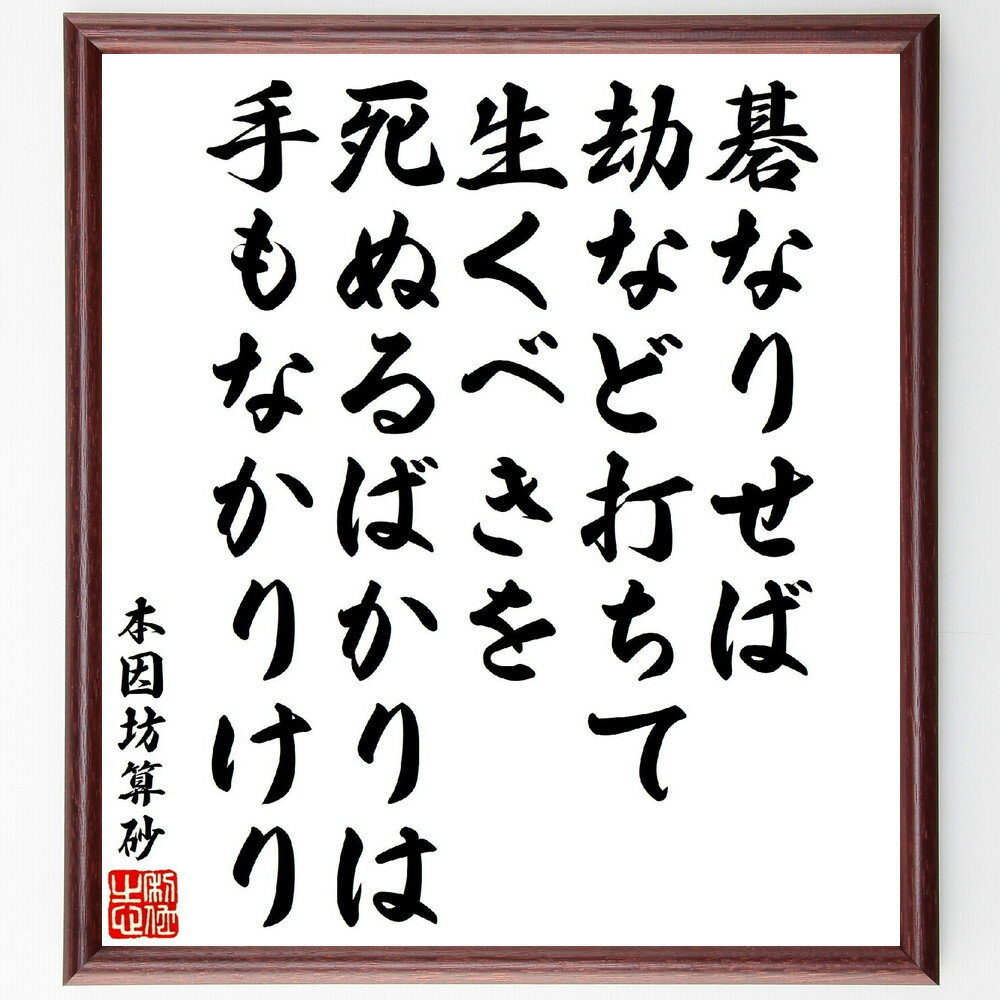 碁なりせば
劫など打ちて
生くべきを
死ぬるばかりは
手もなかりけり
本因坊算砂